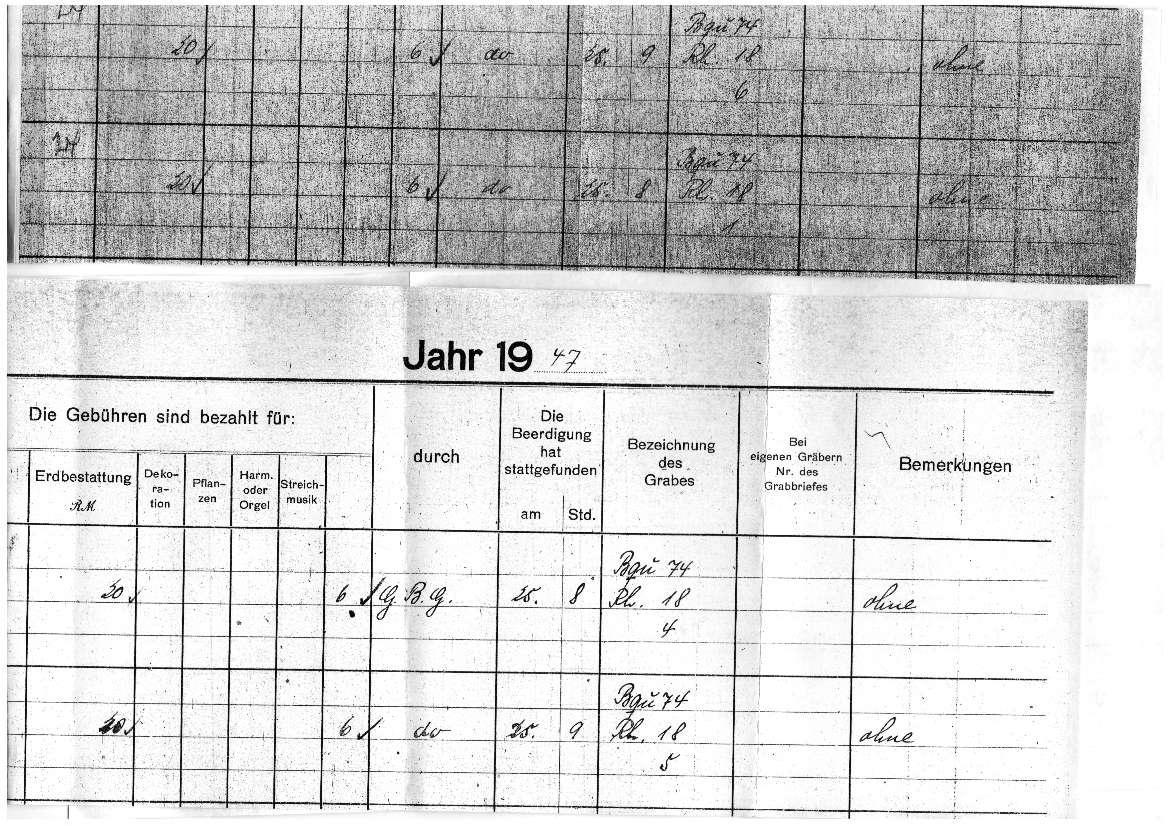 Bqu 74
20 ✓ 6 ✓ do 25. 9 Rh. 18 ohne
6
Bqu 74
20 ✓ 6 ✓ do 25. 8 Rh. 18 ohne
1
Jahr 19 47
Die Gebühren sind bezahlt für:
Erdbestattung
RM
Deko-
ra-
tion
Pflan-
zen
Harm.
oder
Orgel
Streich-
musik
durch
Die
Beerdigung
hat
stattgefunden
am Std.
Bezeichnung
des
Grabes
Bei
eigenen Gräbern
Nr. des
Grabbriefes
Bemerkungen
Bqu 74
20 ✓ 6 ✓ G. B. G. 25. 8 Rh. 18 ohne
4
Bqu 74
20 ✓ 6 ✓ do 25. 9 Rh. 18 ohne
5